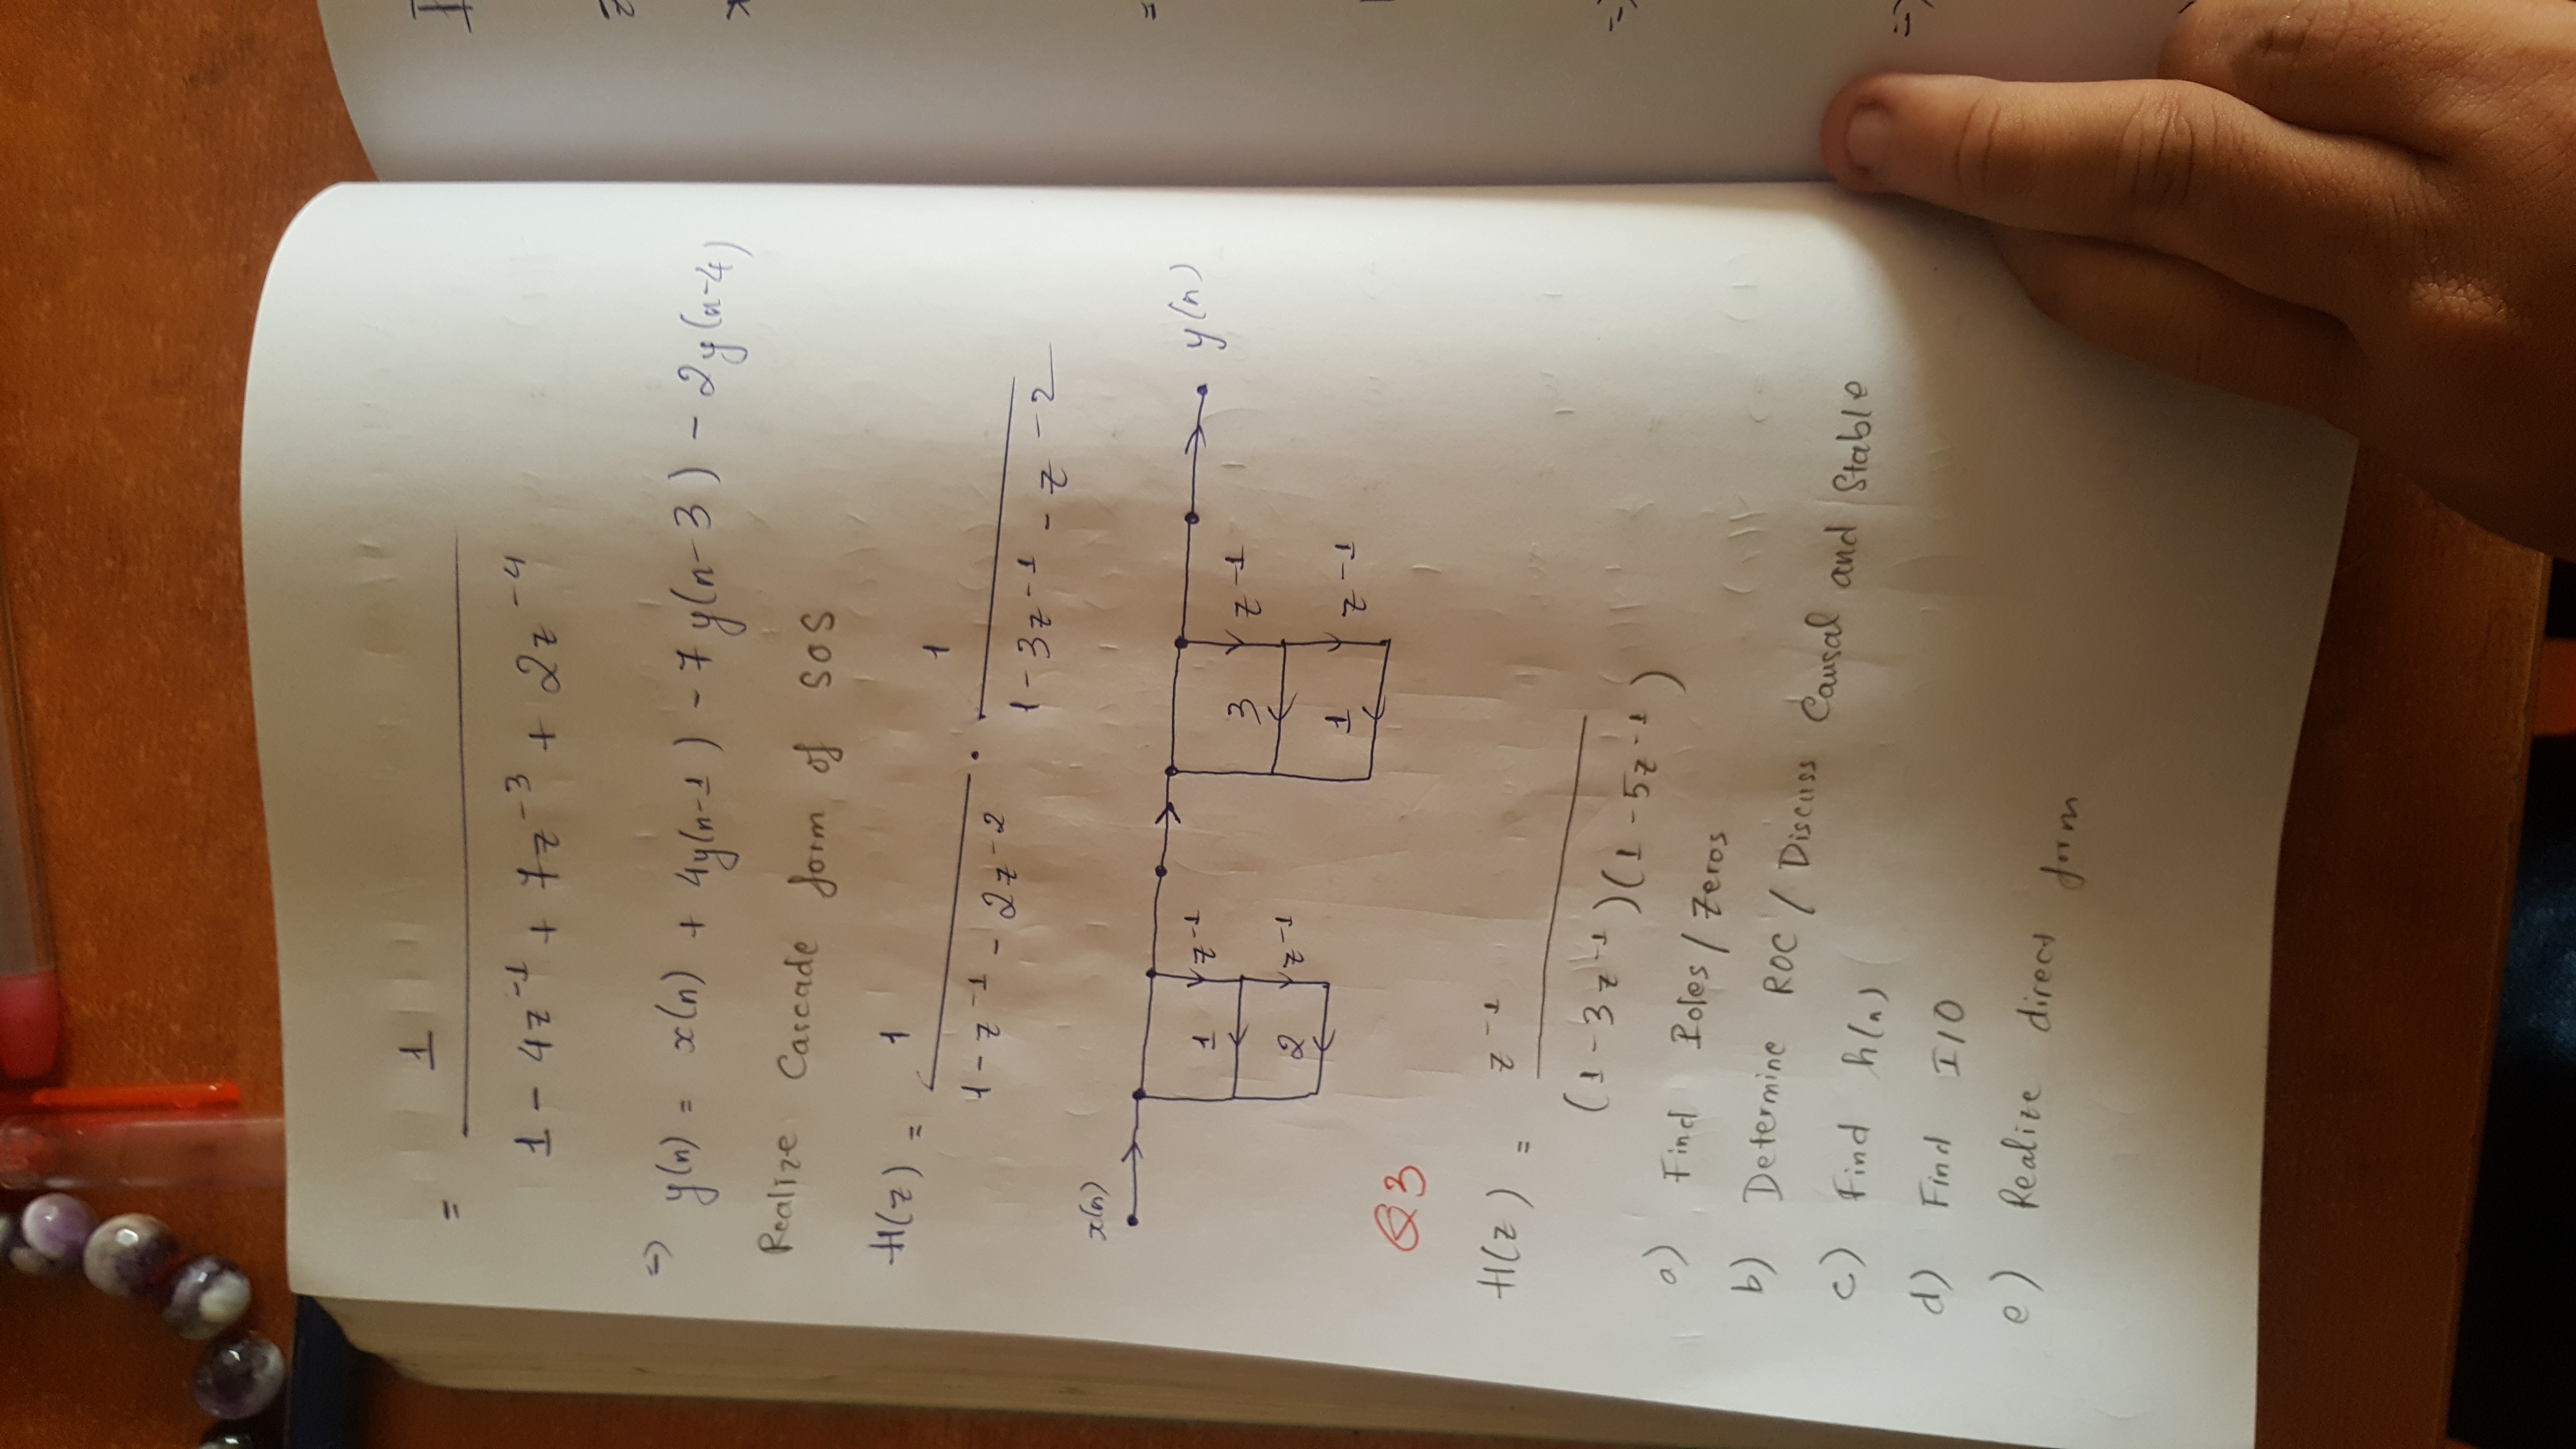 = 1 / (1 - 4z⁻¹ + 7z⁻³ + 2z⁻⁴)
=> y(n) = x(n) + 4y(n-1) - 7y(n-3) - 2y(n-4)
Realize Cascade form of SOS
H(z) = 1 / (1 - z⁻¹ - 2z⁻²) · 1 / (1 - 3z⁻¹ - z⁻²)
x(n)
y(n)
1 z⁻¹
3 z⁻¹
2 z⁻¹
1 z⁻¹
Q3
H(z) = z⁻¹ / (1 - 3z⁻¹)(1 - 5z⁻¹)
a) Find Poles / Zeros
b) Determine ROC / Discuss Causal and Stable
c) Find h(n)
d) Find I/O
e) Realize direct form